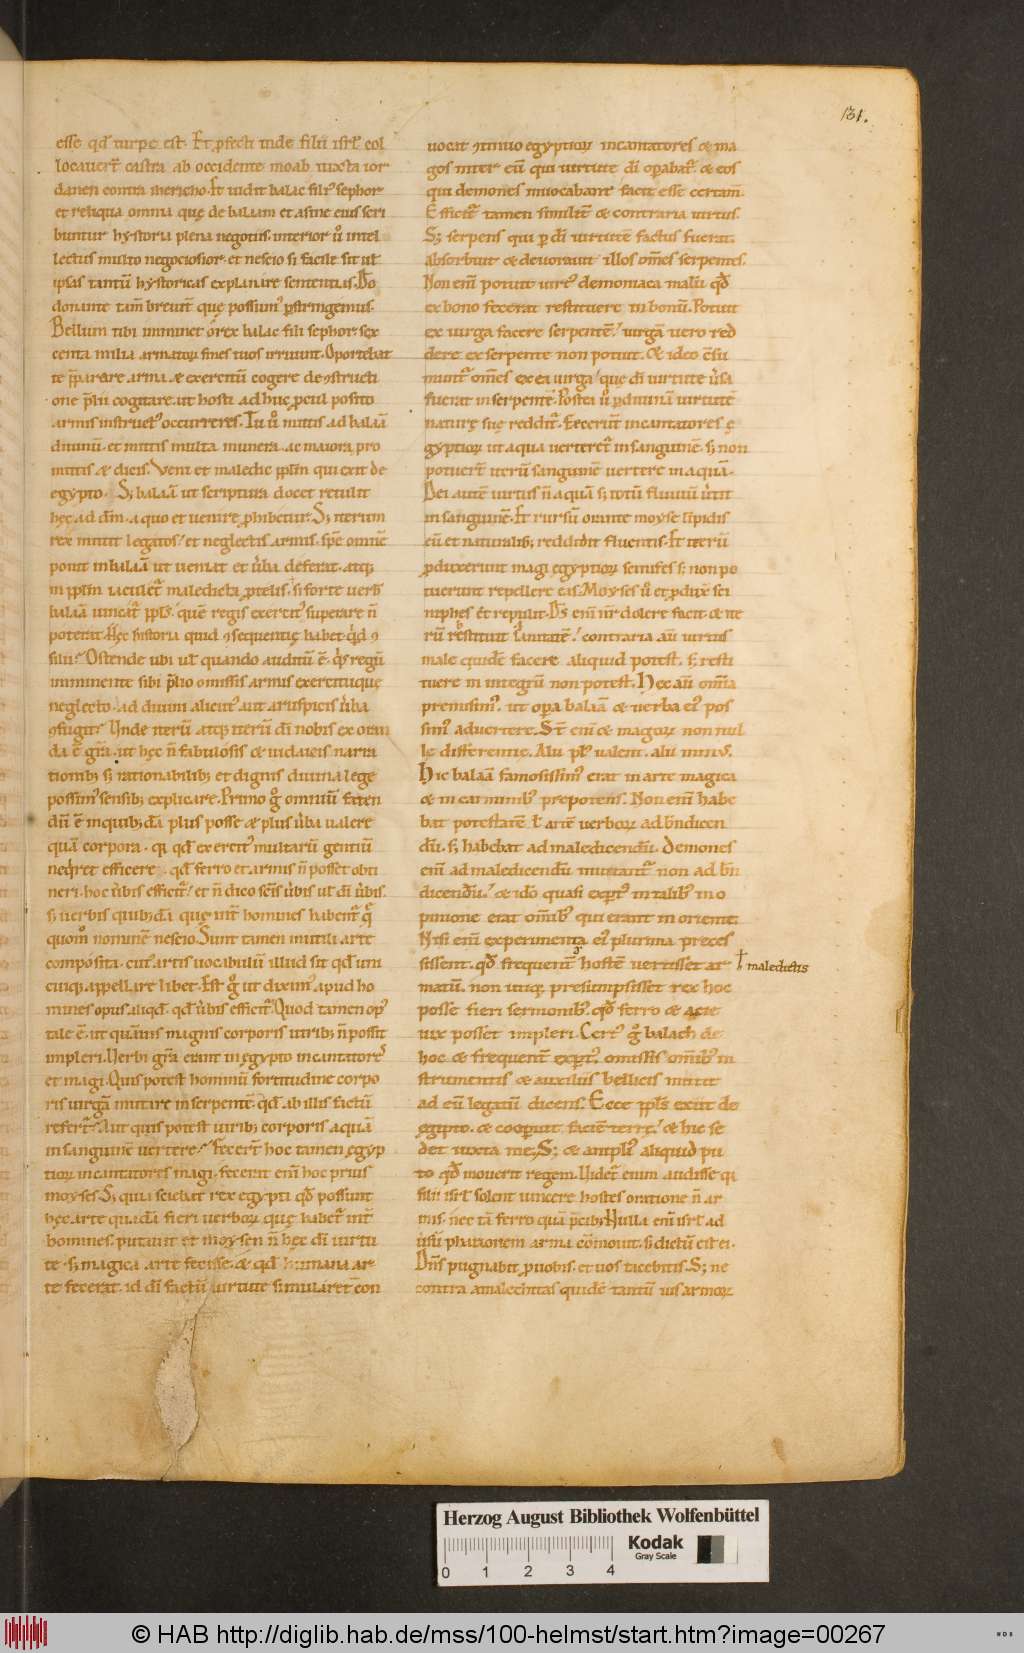 131.
esse qđ turpe est. Et ꝓfecti inde filii isrł col
locauerт̄ castra ab occidente moab iuxta ior
danen contra ihericho. Et uidit balac filiꝰ sephor
et reliqua omnia quę de balaam et asine eius scri
buntur hystoria plena negotiis. interior ů intel
lectus multo negociosior. et nescio si facile sit uł
ipsas tantū hystoricas explanare sententias. Dō
donante tam̄ breuit̄ que possumꝰ ꝑstringemus.
Bellum tibi imminet o rex balac fili sephor. sex
centa milia armatoꝝ fines tuos irruunt. Oportebat
te p̄parare arma. & exercitū cogere de ꝯstructi
one p̄lii cogitare. ut hosti adhuc ꝓcul posito
armis instructꝰ occurreres. Tu ů mittis ad balaā
diuinū. et mittis multa munera. ac maiora pro
mittis & dicis. Veni et maledic ppłm qui exiit de
egypto. Sꝫ balaā ut scriptura docet retulit
hęc ad dn̄m. a quo et uenire ꝓhibetur. Sꝫ iterum
rex mittit legatos. et neglectis armis. spē omnē
ponit in balaā ut ueniat et ůba deferat. atqꝫ
in ppłm iaculet̄ maledicta ꝓ telis. si forte uerb̄
balaā uincat̄ ppłs. quē regis exercitꝰ superare n̄
poterat. Hęc historia quid ꝯsequentię habet. qͥd ꝯ
silii? Ostende ubi uł quando auditū ē. qͥs regū
imminente sibi p̄lio omissis armis exercituque
neglecto. ad diuini alicuiꝰ aut aruspicis ůba
ꝯfugit? Unde iterū atqꝫ iterū dī nobis exoran
da ē gr̄a. ut hęc n̄ fabulosis & iudaicis narra
tionibꝫ sꝫ rationabilibꝫ et dignis diuina lege
possimꝰ sensibꝫ explicare. Primo g̊ omniū faten
dū ē in quibꝫdā plus posse & plus ůba ualere
quā corpora. qͥ qđ exercitꝰ multarū gentiū
neqͥret efficere. qđ ferro et armis n̄ posset obti
neri. hoc ůbis efficit̄. et n̄ dico scīs ůbis uł dī ůbis.
sꝫ uerbis quibꝫdā que int̄ homines habent̄ q̄
quom̊ nominē nescio. Sunt tamen inutili arte
composita. cuiꝰ artis uocabulū illud sit qđ uni
cuiqꝫ appellare libet. Est g̊ ut diximꝰ apud ho
mines opus aliqđ. qđ ůbis efficit̄. Quod tamen opꝰ
tale ē. ut quāuis magnis corporis uiribꝫ n̄ possit
impleri. Verbi gr̄a erant in ęgypto incantatorēs
et magi. Quis potest hominū fortitudine corpo
ris uirgā mutare in serpentē. qđ ab illis factū
refert̄. Aut quis potest uiribꝫ corporis aquā
in sanguinē uertere? Fecerт̄ hoc tamen ęgyp
tioꝝ incantatores magi. fecerat enī hoc prius
moyses. Sꝫ quia sciebat rex egypti qđ possunt
hęc arte quadā fieri uerboꝝ quę habet̄ int̄
homines. putauit et moysen n̄ hęc dī uirtu
te. sꝫ magica arte fecisse. & qđ humana ar
te fecerat. id dī factū uirtute simularet. con
uocat ꝯtinuo egyptioꝝ incantatores & ma
gos inter eū qui uirtute dī oꝑabat̄. & eos
qui demones inuocabant facit esse certam̄.
Efficit̄ tamen similit̄ & contraria uirtus.
Sꝫ serpens qui ꝑ dī uirtutē factus fuerat.
absorbuit & deuorauit illos om̄es serpentes.
Non enī potuit uirtꝰ demoniaca malū qđ
ex bono fecerat restituere in bonū. Potuit
ex uirga facere serpentē. uirgā uero red
dere ex serpente non potuit. & ideo cōsu
munt̄ om̄es ex ea uirga. que dī uirtute ůsa
fuerat in serpentē. Postea ů ꝑ diuinā uirtutē
naturę suę reddit̄. Fecerunt incantatores ę
gyptioꝝ ut aqua uerteret̄ in sanguinē. sꝫ non
potuerт̄ uerū sanguinē uertere in aquā.
Dei autē uirtus n̄ aquā sꝫ totū fluuiū ůtit
in sanguinē. Et rursū orante moyse līpidis
eū et naturalibꝫ reddidit fluentis. Et iterū
ꝓduxerunt magi egyptioꝝ scinifes sꝫ non po
tuerunt repellere eas. Moyses ů et ꝓduxit sci
niphes et repulit. Ds̄ enī nr̄ dolere facit. & ite
rū restituit sanitatē. contraria aū uirtus
male quidē facere aliquid potest. sꝫ resti
tuere in integrū non potest. Hęc aū om̄ia
premisimꝰ. ut oꝑa balaā & uerba eiꝰ pos
simꝰ aduertere. St̄ enī & magoꝝ non nul
lę differentię. Alii plꝰ ualent. alii minꝰ.
Hic balaā famosissimꝰ erat in arte magica
& in carminibꝰ prepotens. Non enī habe
bat potestatē uł artē uerboꝝ ad bn̄dicen
dū. sꝫ habebat ad maledicendū. Demones
enī ad maledicendū inuitant̄ non ad bn̄
dicendū. & ideo quasi exꝑtꝰ in talibꝰ in o
pinione erat om̄ibꝰ qui erant in oriente.
Nisi enī experimenta eiꝰ plurima preces
sissent. qđ frequent̄ hostē uertisset ar
maledictis
matū. non utiqꝫ presumpsisset rex hoc
posse fieri sermonibꝰ. qđ ferro & acie
uix posset impleri. Certꝰ g̊ balach de
hoc & frequent̄ exꝑtꝰ. omissis om̄ibꝰ in
strumentis & auxiliis bellicis mittit
ad eū legatū dicens. Ecce ppłs exiit de
ęgipto. & cooperuit faciē terrę. & hic se
det iuxta me. Sꝫ & ampliꝰ aliquid pu
to qđ mouerit regem. Videt̄ enim audisse qͥ
filii isrł solent uincere hostes oratione n̄ ar
mis. nec tā ferro quā p̄cibꝫ. Nulla enī isrł ad
ůsū pharaonem arma cōmouit. sꝫ dictū est ei.
Dn̄s pugnabit ꝓ uobis. et uos tacebitis. Sꝫ ne
contra amalechitas quidē tantū uis armoꝝ
Herzog August Bibliothek Wolfenbüttel
Kodak
Gray Scale
0 1 2 3 4
© HAB http://diglib.hab.de/mss/100-helmst/start.htm?image=00267